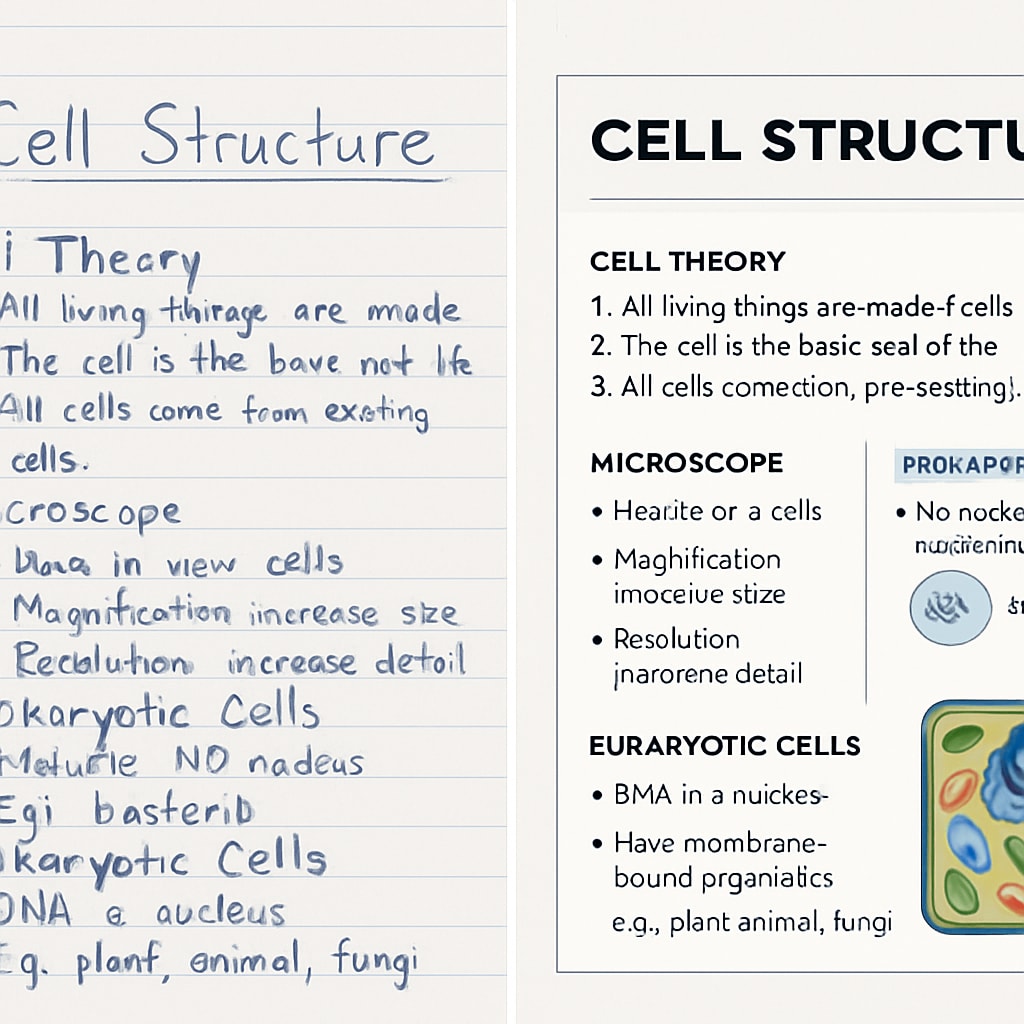 Cell Structure
i Theory
All living thirage are made
The cell is the bave not life
All cells come from existing
cells.
croscope
in view cells
Magnification increase size
increase detail
okaryotic Cells
NO nadeus
Egi basterib
karyotic Cells
DNA a aucleus
Eg. plant, animal, fungi
CELL STRUCTU
CELL THEORY
1. All living things are-made-f cells
2. The cell is the basic seal of the
3. All cells comection, pre-sestting}.
MICROSCOPE
• Hearite or a cells
• Maghification
imoceiue stize
• Resolution
jnarorene detail
PROKAPOR
• No nocke
EURARYOTIC CELLS
• BMA in a nuickes-
• Have mombrane-
bound prganiatics
e.g., plant animal, fungi